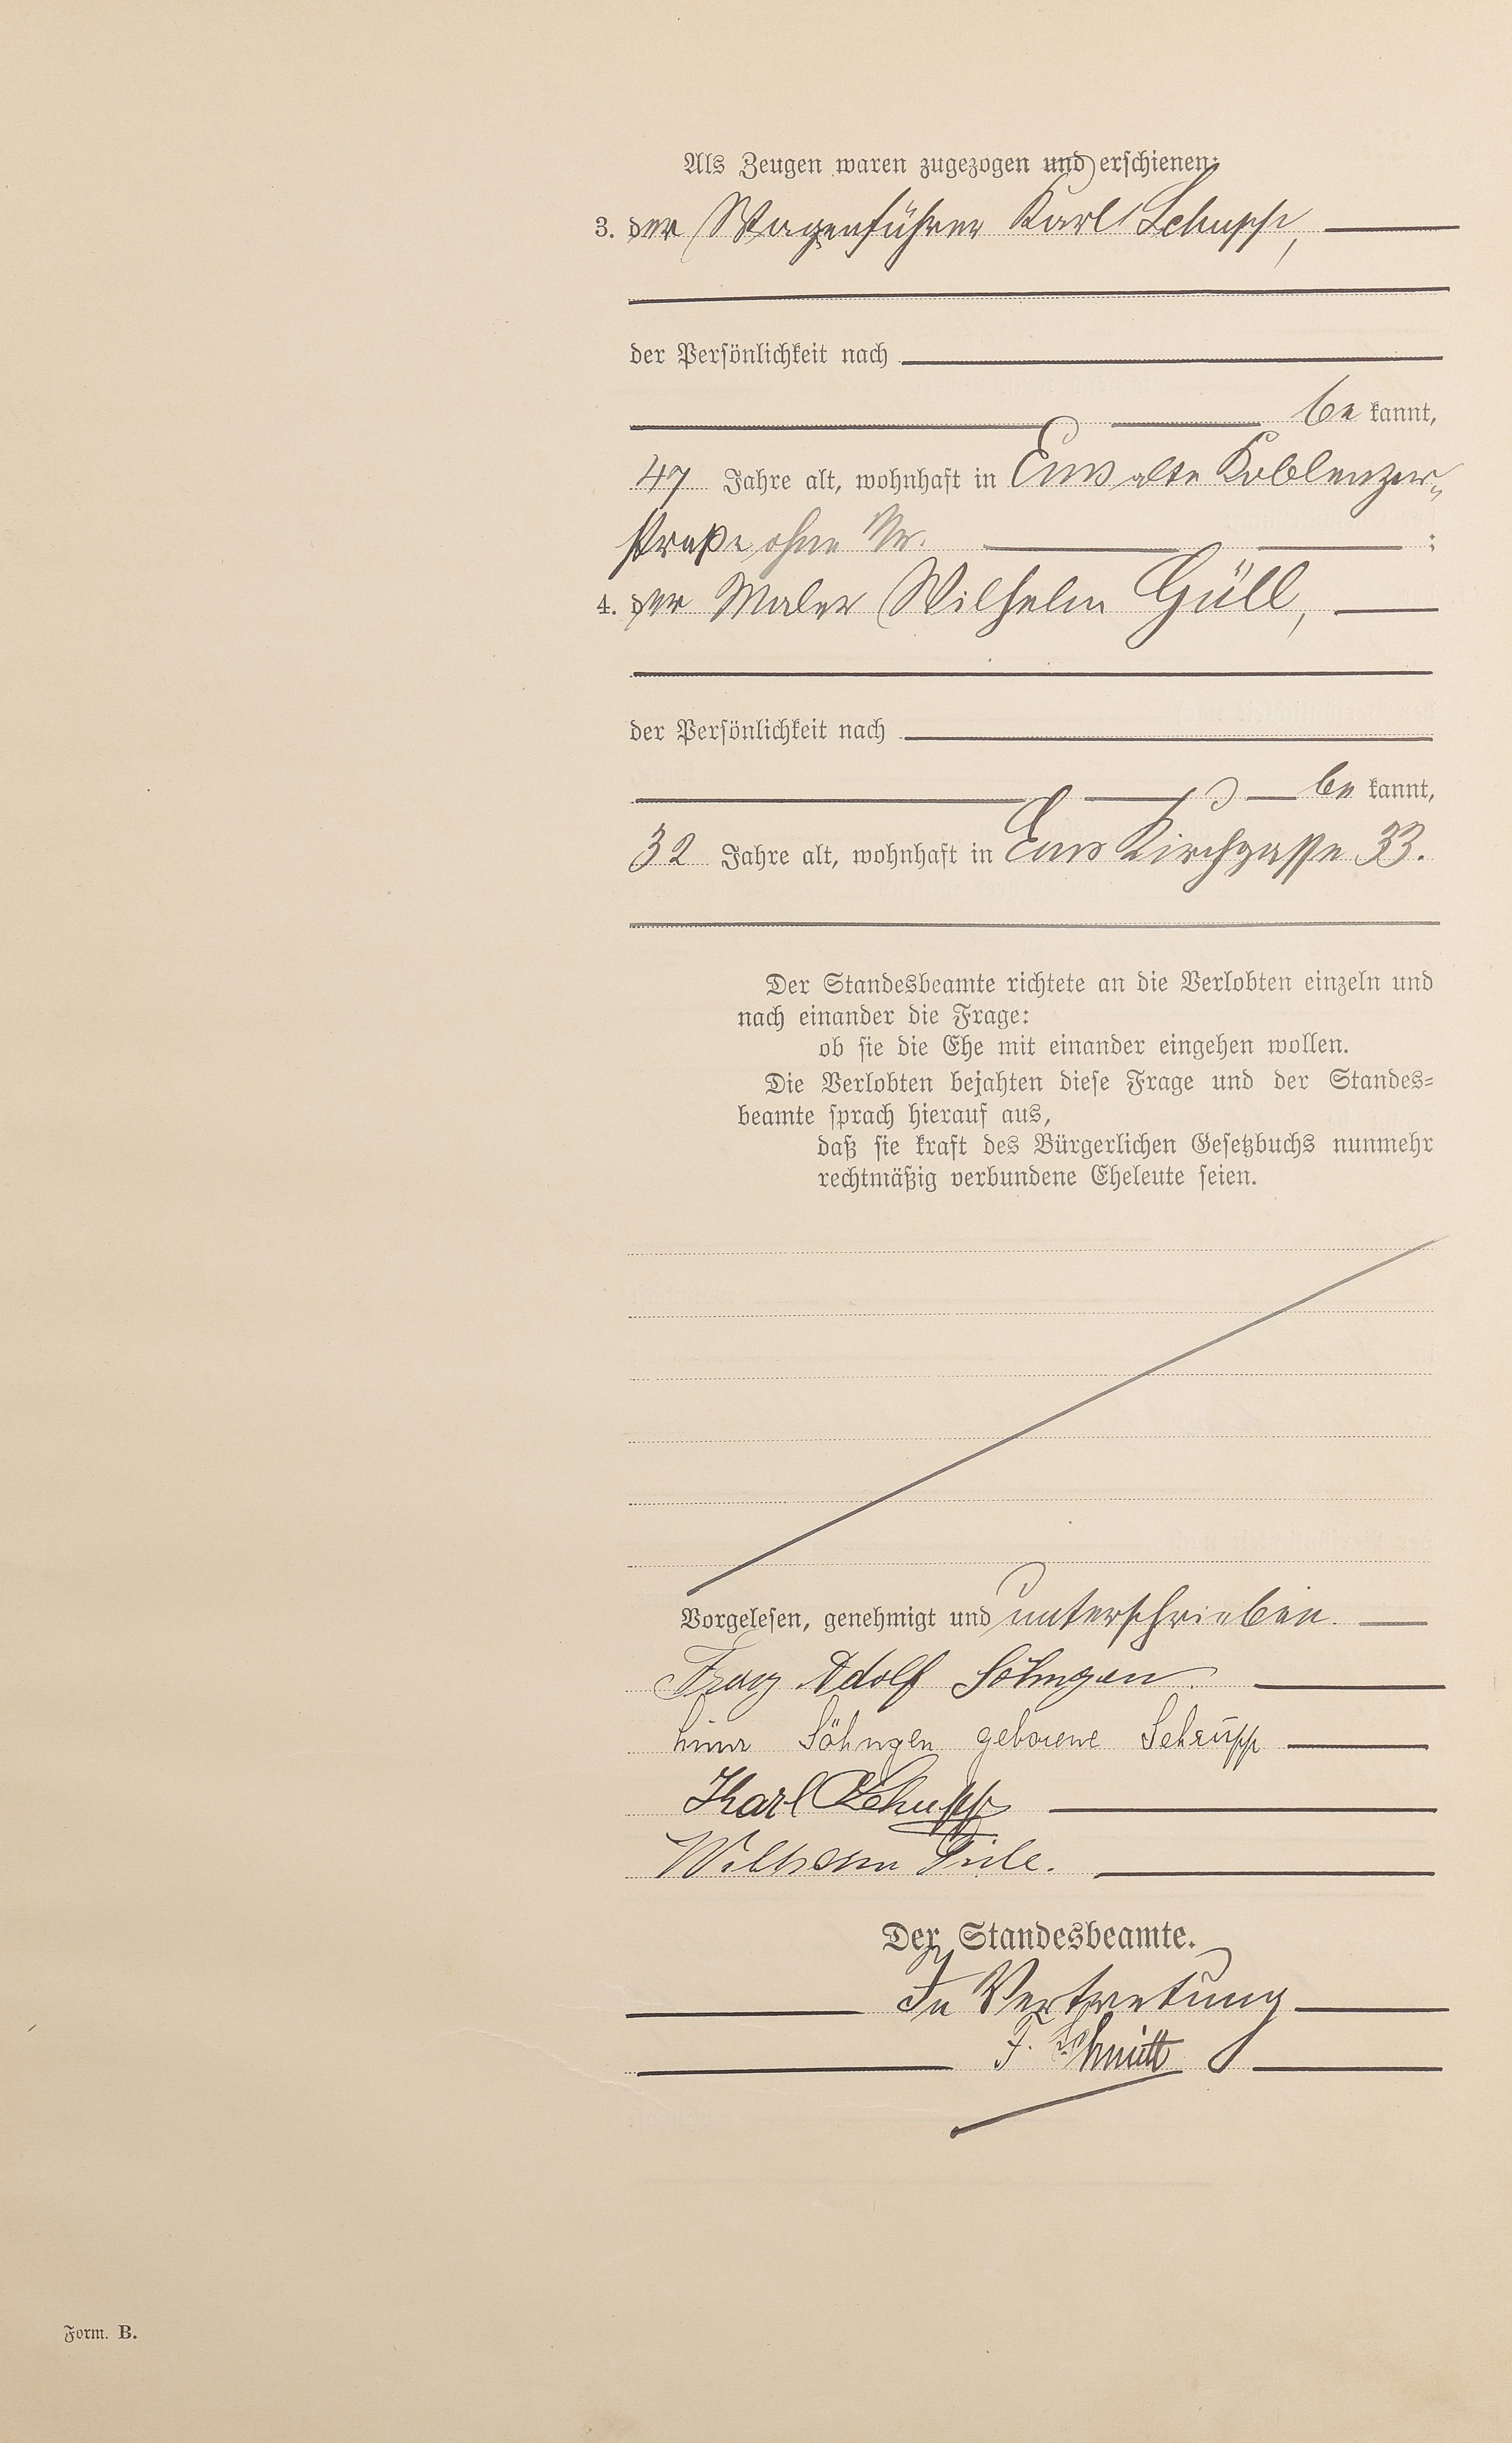 Als Zeugen waren zugezogen und erschienen:
3. der Wagenführer Karl Schupp,
der Persönlichkeit nach
be kannt,
47 Jahre alt, wohnhaft in Ems alte Koblenzer-
straße ohne Nr. ;
4. der Maler Wilhelm Güll,
der Persönlichkeit nach
be kannt,
32 Jahre alt, wohnhaft in Ems Kirchgasse 33.
Der Standesbeamte richtete an die Verlobten einzeln und
nach einander die Frage:
ob sie die Ehe mit einander eingehen wollen.
Die Verlobten bejahten diese Frage und der Standes=
beamte sprach hierauf aus,
daß sie kraft des Bürgerlichen Gesetzbuchs nunmehr
rechtmäßig verbundene Eheleute seien.
Vorgelesen, genehmigt und unterschrieben.
Franz Adolf Söhngen.
Söhngen geborene Schupp
Karl Schupp
Wilhelm
Der Standesbeamte.
In Vertretung
F. Schmitt
Form. B.